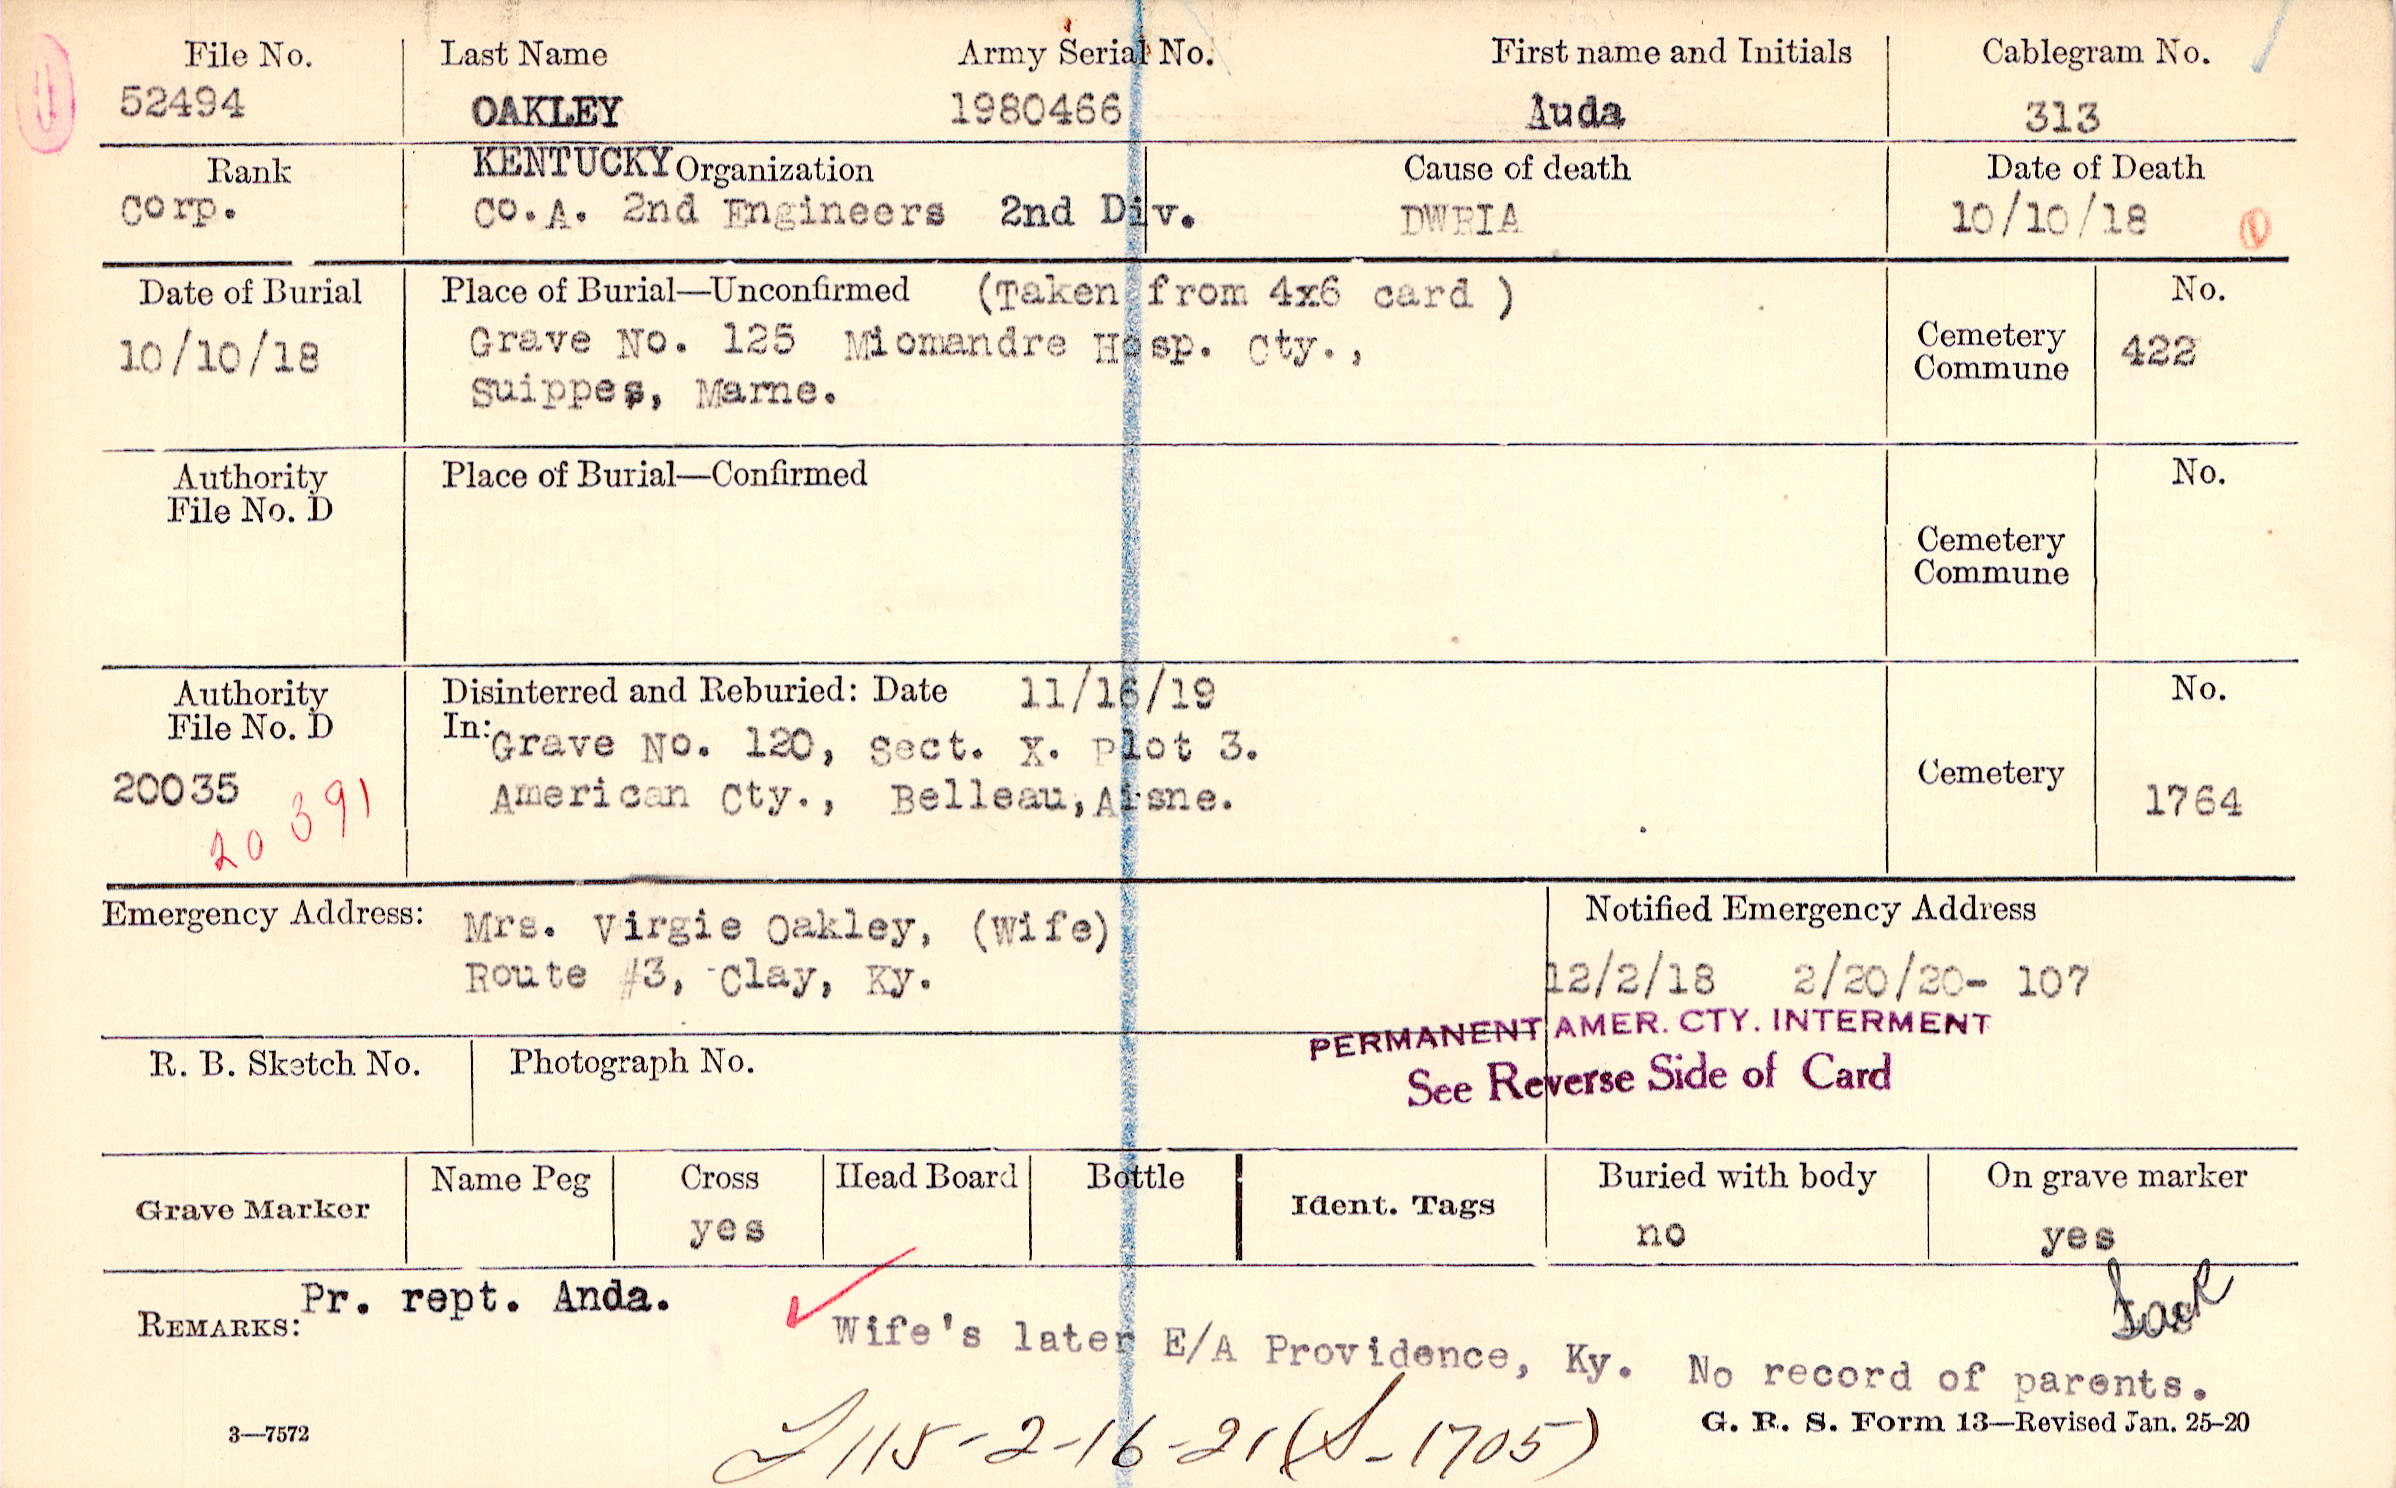 File No. Last Name Army Serial No. First name and Initials Cablegram No.
52494 OAKLEY 1980466 Auda 313
Rank KENTUCKY Organization Cause of death Date of Death
Corp. Co.A. 2nd Engineers 2nd Div. DWRIA 10/10/18
Date of Burial Place of Burial—Unconfirmed (Taken from 4x6 card ) No.
10/10/18 Grave No. 125 Miomandre Hosp. Cty., Cemetery 422
Suippes, Marne. Commune
Authority Place of Burial—Confirmed No.
File No. D
Cemetery
Commune
Authority Disinterred and Reburied: Date 11/16/19 No.
File No. D In: Grave No. 120, Sect. X. Plot 3.
20035 American Cty., Belleau, Aisne. Cemetery 1764
20391
Emergency Address: Mrs. Virgie Oakley, (Wife) Notified Emergency Address
Route #3, Clay, Ky. 12/2/18 2/20/20- 107
PERMANENT AMER. CTY. INTERMENT
R. B. Sketch No. Photograph No. See Reverse Side of Card
Grave Marker Name Peg Cross Head Board Bottle Ident. Tags Buried with body On grave marker
yes no yes
REMARKS: Pr. rept. Anda.
Wife's later E/A Providence, Ky. No record of parents.
3—7572 G. R. S. Form 13—Revised Jan. 25-20
115-2-16-21 (S-1705)